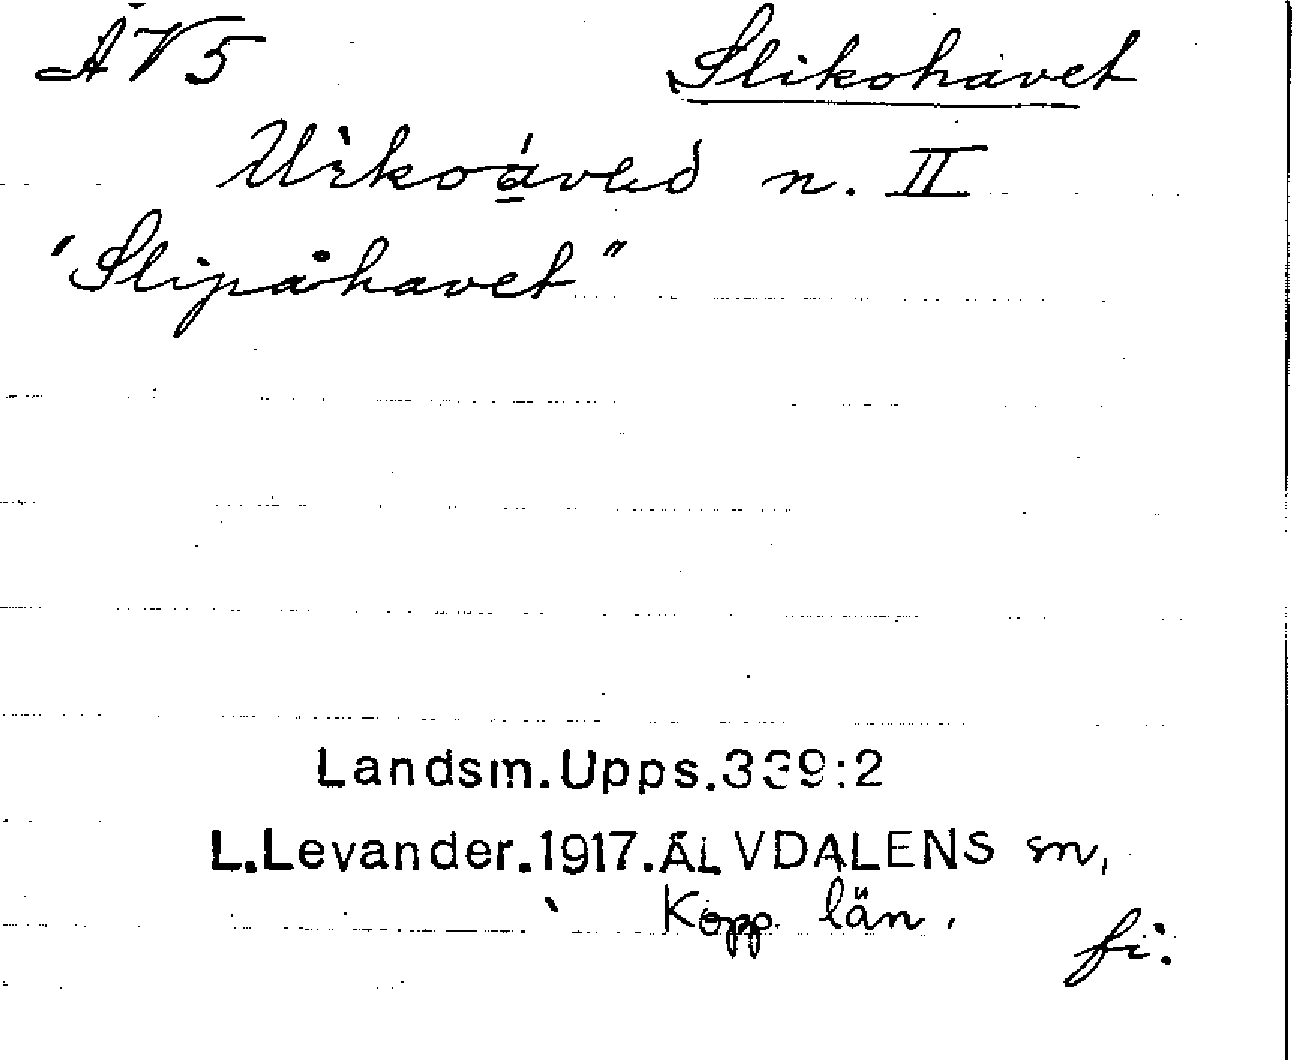 ÄV5 Slikohavet
Urkoáveð n. II
"Slipåhavet"
Landsm.Upps.339:2
L.Levander.1917.ÄLVDALENS sn,
Kopp. län.
fi.